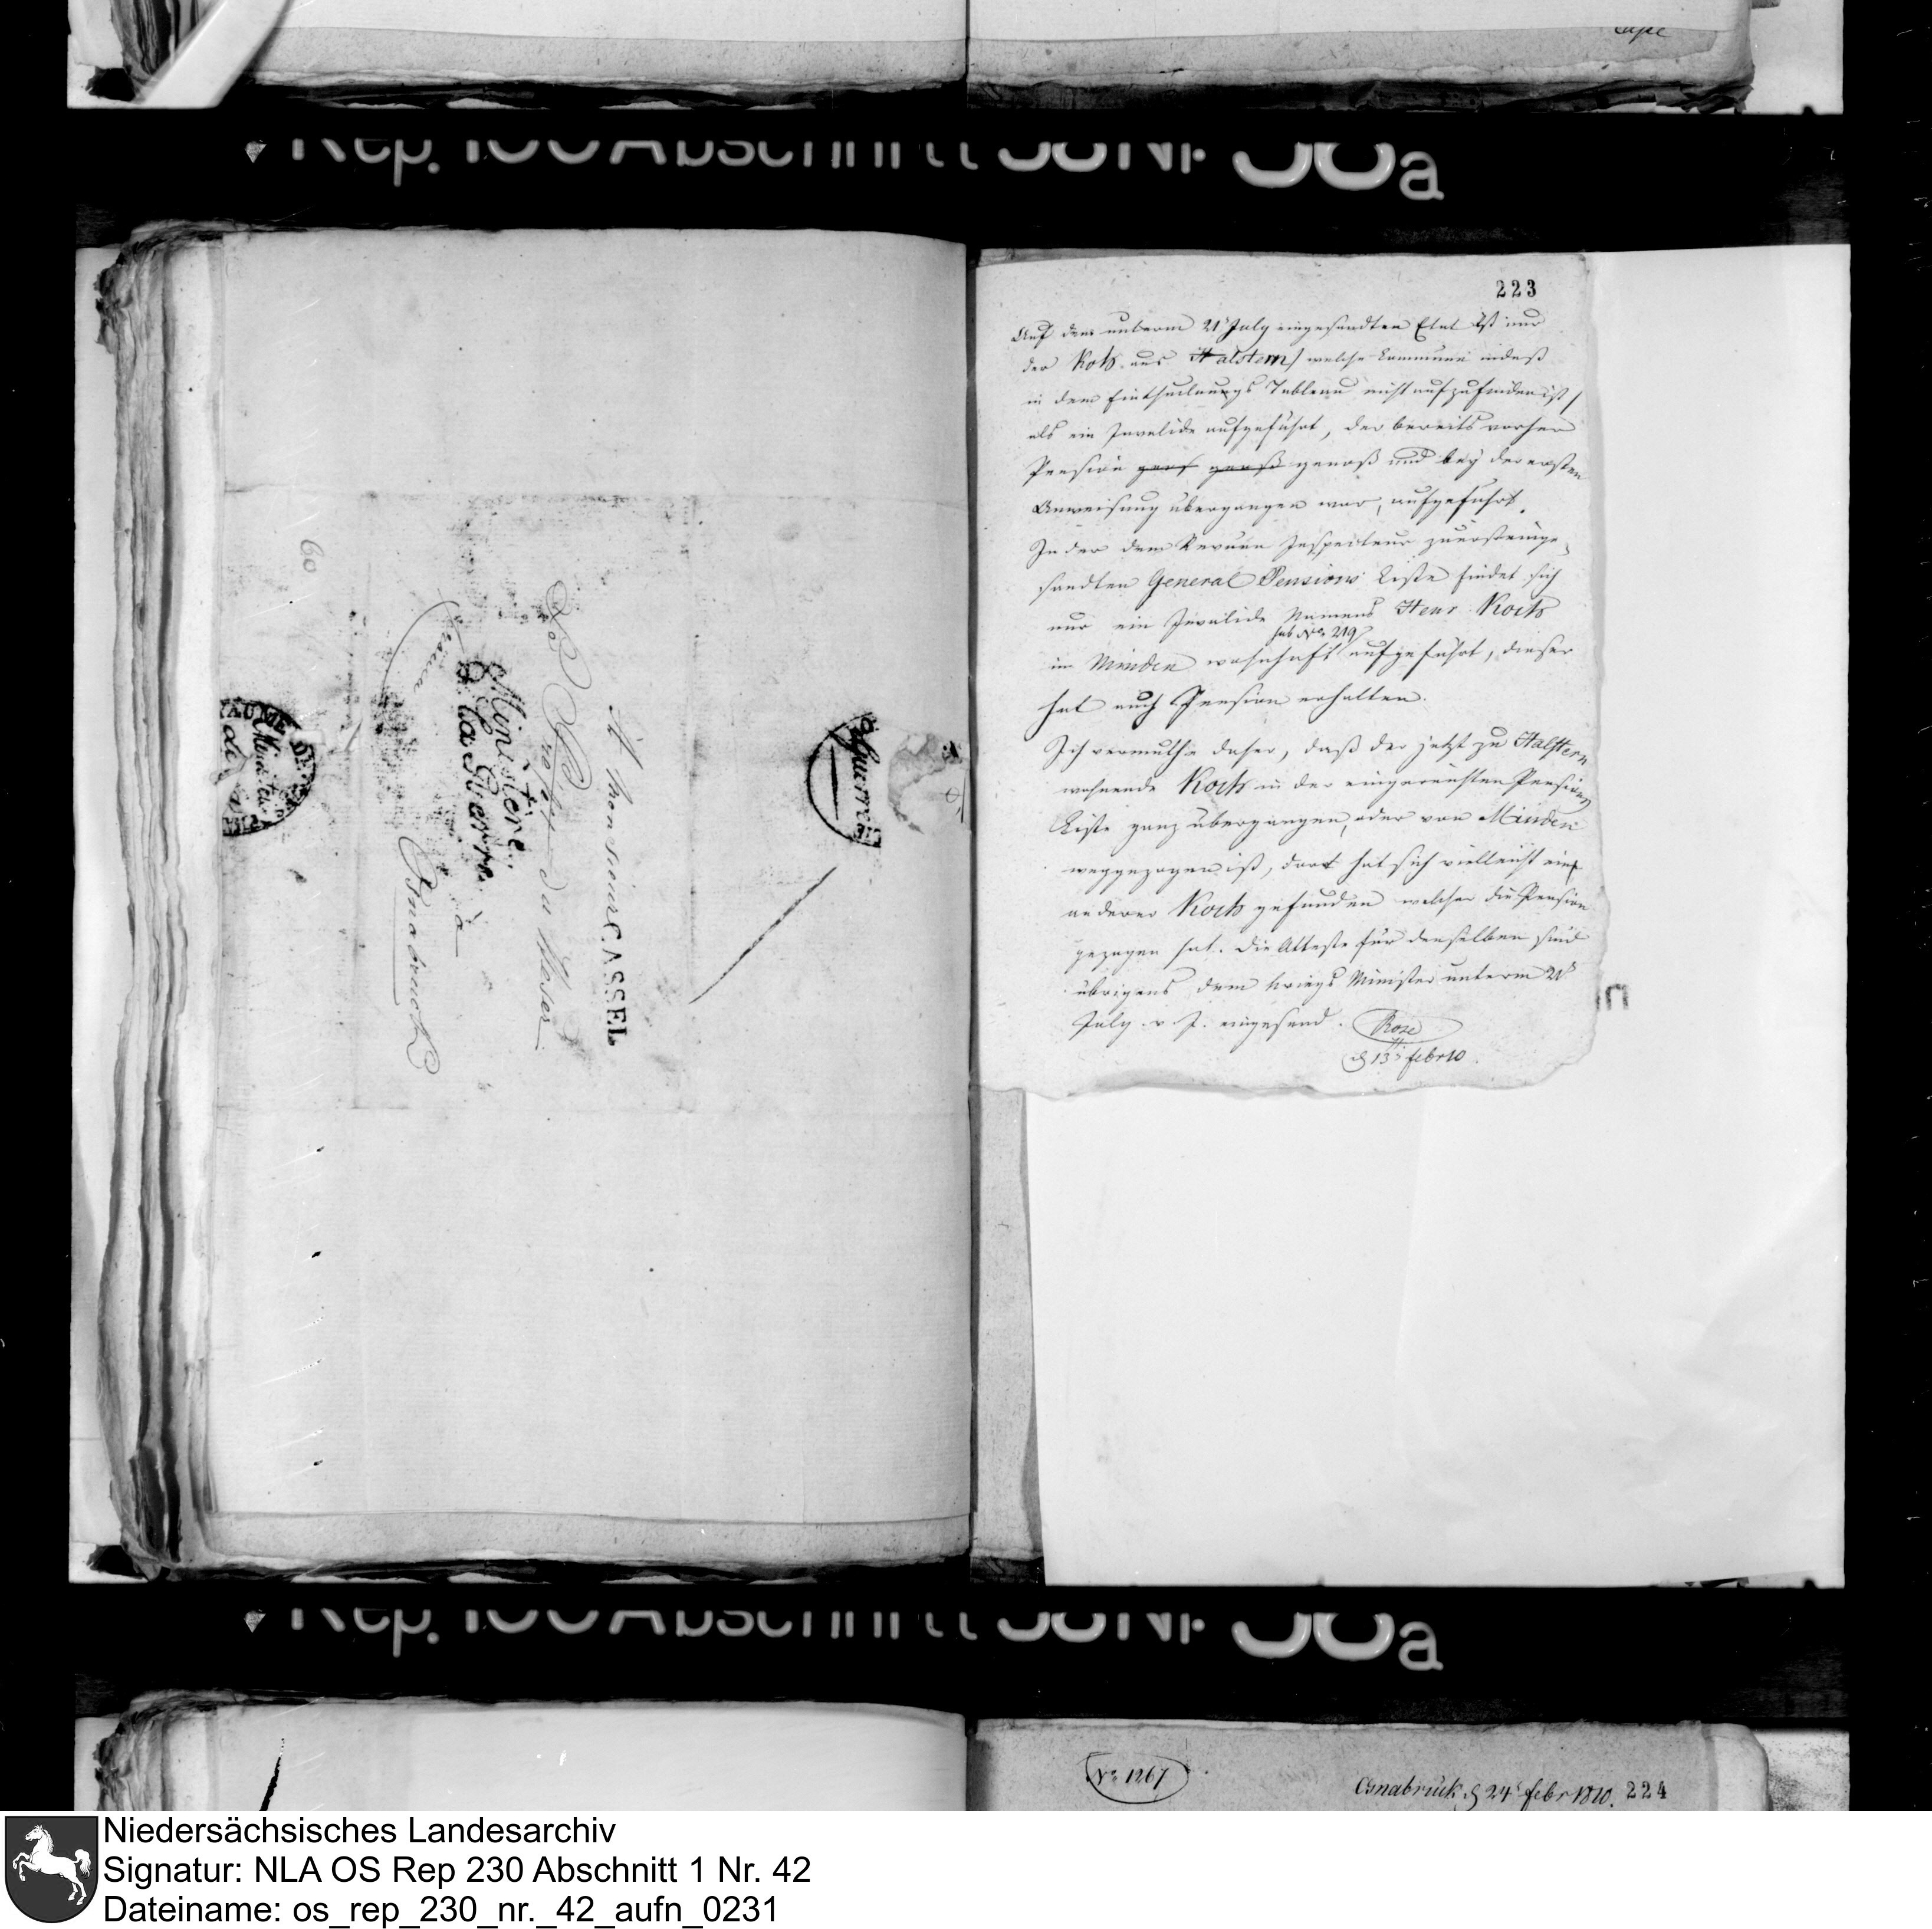 Rep. 100 Abschnitt 58 Nr. 38a
60
A Monsieur CASSEL
Du Weser
Ministère
de la Guerre.
à
Osnabruck
Guerre
223
Auf dem unterm 21t July eingesandten Etat ist nur
der Koch aus Halstern / welche Commune indeß
in dem Eintheilungs Tableau nicht aufzufinden ist /
als ein Invalide aufgeführt, der bereits vorher
Pension genoß und bey der ersten
Anweisung übergangen war, aufgeführt.
In der dem Revuen Inspecteur zuerst einge-
sandten General Pensions Liste findet sich
nur ein Invalide Namens Henr Koch
sub No 219
in Minden wohnhaft aufgeführt, dieser
hat auch Pension erhalten.
Ich vermuthe daher, daß der jetzt zu Halstern
wohnende Koch in der eingereichten Pensions
Liste ganz übergangen, oder von Minden
weggezogen ist, dort hat sich vielleicht ein
anderer Koch gefunden welcher die Pension
gezogen hat. Die Atteste für denselben sind
übrigens dem Kriegs Minister unterm 21t
July v. J. eingesand.
Rose
d 13t febr 10.
Rep. 100 Abschnitt 58 Nr. 38a
No 1267
Osnabrück d 24t febr 1810. 224
Niedersächsisches Landesarchiv
Signatur: NLA OS Rep 230 Abschnitt 1 Nr. 42
Dateiname: os_rep_230_nr._42_aufn_0231